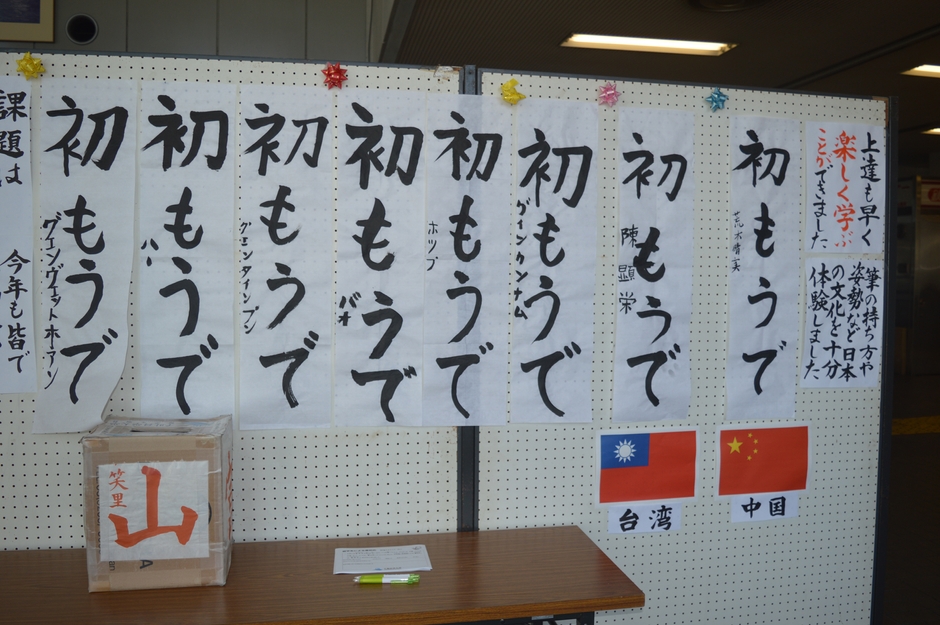 上達も早く
楽しく学ぶ
ことができました
筆の持ち方や
姿勢など日本
の文化を十分
体験しました
初もうで
初もうで
陳顕栄
初もうで
グインクンナム
初もうで
ホップ
初もうで
バオ
初もうで
初もうで
初もうで
グエンヴェットホーアン
課題は
今年も皆で
中国
台湾
山
笑里